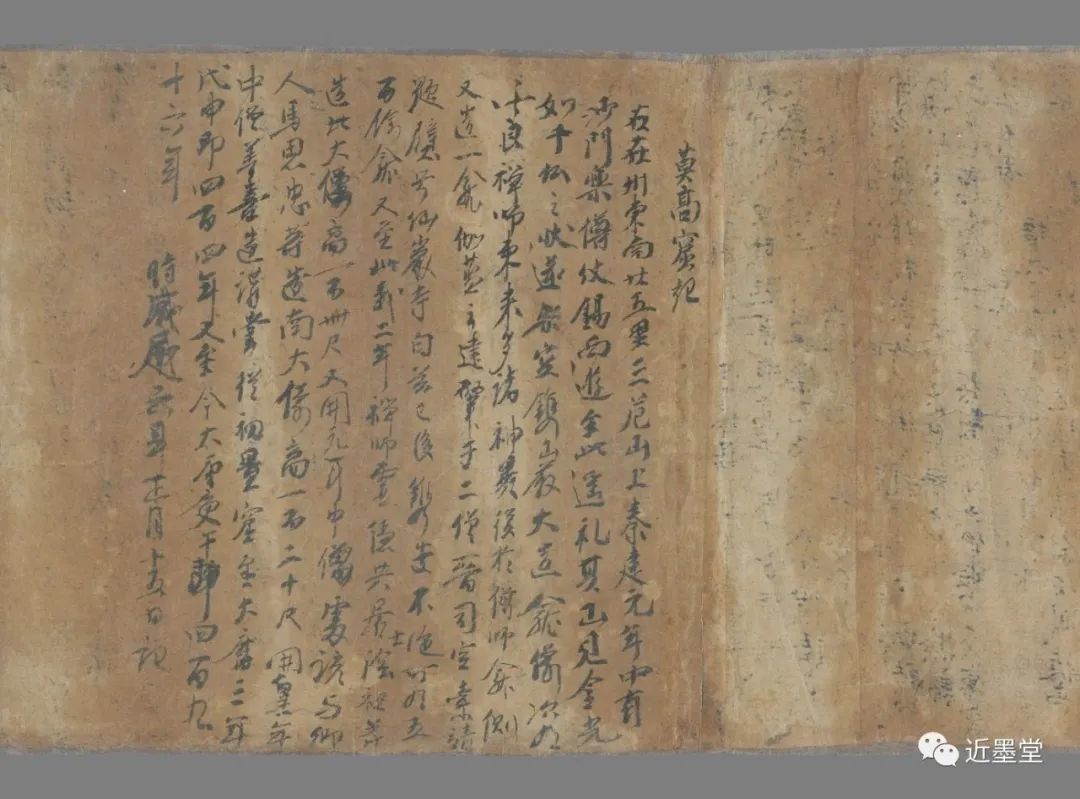 莫高窟記
右在州東南廿五里三危山上秦建元年中有
沙門樂僔仗錫西遊至此遥礼其山見金光
如千仏之狀遂架空鐫山巖大造龕像次有
法良禪師東来多諸神異復於僔師龕側
又造一龕伽藍之建肇于二僧晉司空索靖
題壁号仙巖寺自茲已後鐫造不絶可有五
百餘龕又至延載二年禪師靈隱共居士陰祖等
造北大像高一百卌尺又開元年中僧處諺与鄉
人馬思忠等造南大像高一百二十尺開皇年
中僧善喜造講堂從初置窟至大曆三年
戊申即四百四年又至今大唐庚午即四百九
十六年
時咸通六年正月十五日記
近墨堂